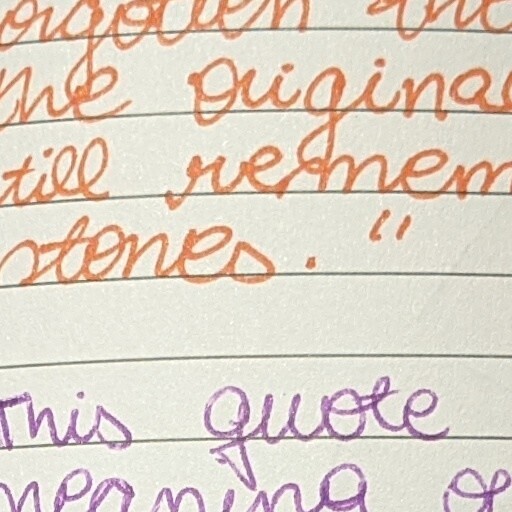 orgotten the
the origina
till remem
stones."
This quote
meaning of